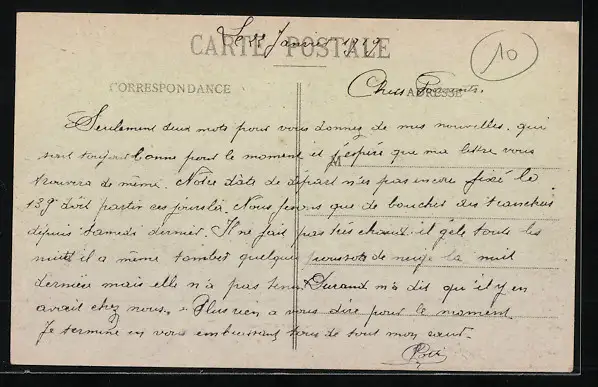 Le 23 Janvier 1919
10
CARTE POSTALE
CORRESPONDANCE
ADRESSE
Chers Parents.
Seulement deux mots pour vous donner de mes nouvelles. qui
sont toujours bonne pour le moment et j'espère que ma lettre vous
M
trouvera de même. Notre date de départ n'es pas encore fixé le
139 doit partir ces jours là. Nous fesons que de boucher des tranchées
depuis samedi dernier. Il ne fait pas très chaud. il gèle toute les
nuits il a même tombet quelques de neige la nuit
dernière mais elle n'a pas tenu. Durand m'a dit qu'il y en
avait chez nous. Plus rien a vous dire pour le moment
Je termine en vous embrassant tous de tout mon cœur.